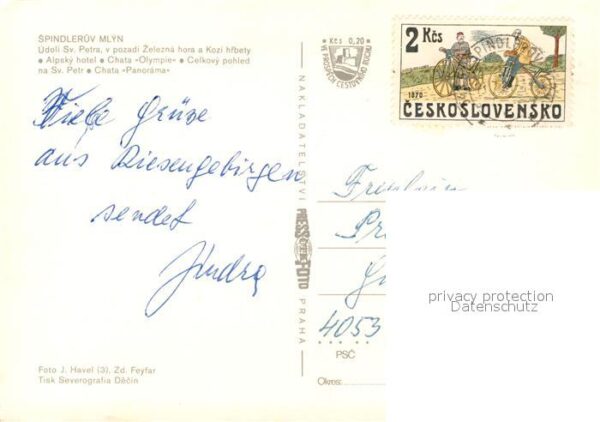 ŠPINDLERŮV MLÝN
Údolí Sv. Petra, v pozadí Železná hora a Kozí hřbety
• Alpský hotel • Chata «Olympie» • Celkový pohled
na Sv. Petr • Chata «Panoráma»
Kčs 0,20
VE PROSPĚCH CESTOVNÍHO RUCHU
2 Kčs
1870
ČESKOSLOVENSKO
ŠPINDLERŮV
Viele Grüße
aus Riesengebirgen
sendet
Jindra
NAKLADATELSTVÍ
PRESSFOTO
PRAHA
Fräulein
4053
PSČ
Okres:
privacy protection
Datenschutz
Foto J. Havel (3), Zd. Feyfar
Tisk Severografia Děčín